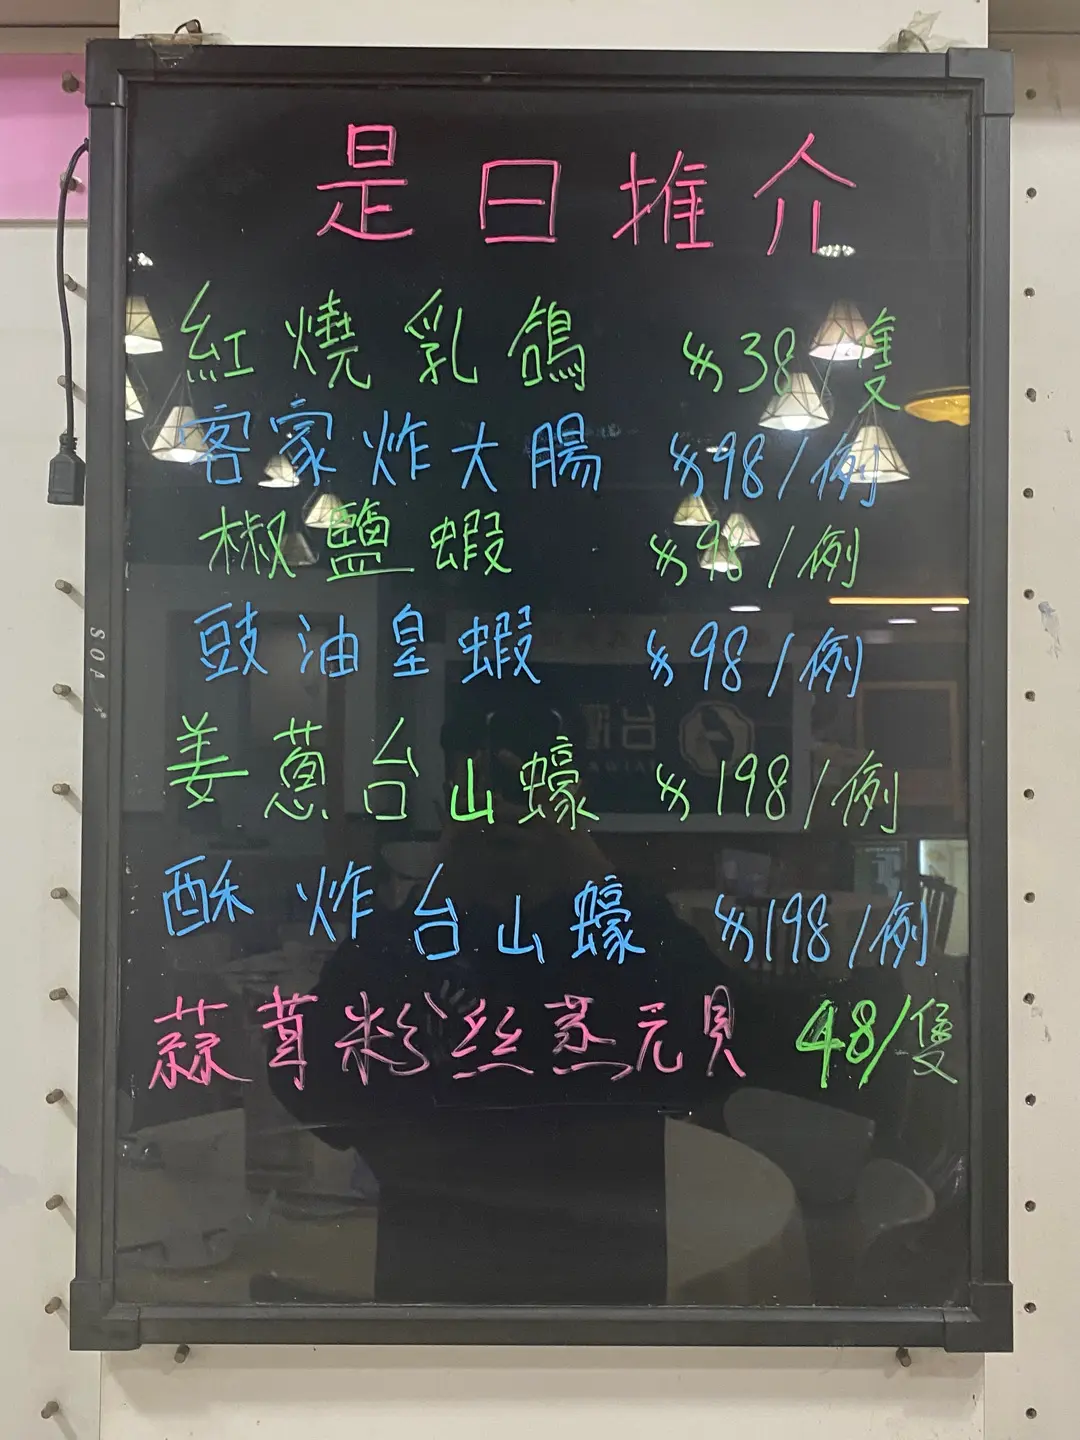 是日推介
紅燒乳鴿 $38/隻
客家炸大腸 $98/例
椒鹽蝦 $98/例
豉油皇蝦 $98/例
姜蔥台山蠔 $198/例
酥炸台山蠔 $198/例
蒜茸粉丝蒸元貝 48/隻
SOPA